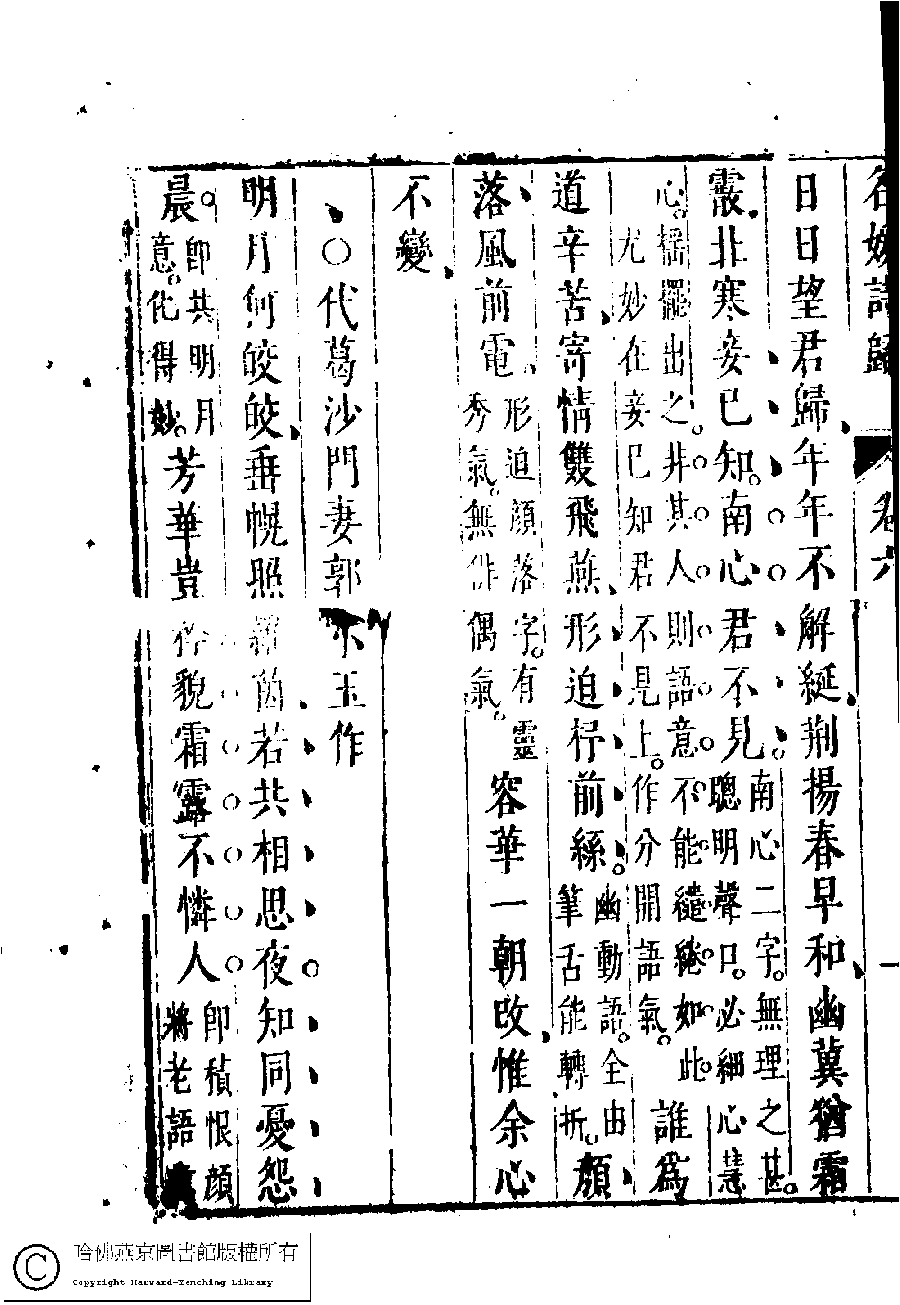 名媛詩歸 卷六 一
日日望君歸年年不解綖荆揚春早和幽冀猶霜
霰北寒妾已知南心君不見
南心二字。無理之甚。
聰明聲口。必細心慧
心。搖擺出之。非其人則語意不能繾綣如此
尤妙在妾已知君不見上。作分開語氣。
誰為
道辛苦寄情雙飛燕形迫杼前絲
幽動語。全由
筆舌能轉折。
顏
落風前電
形迫顏落字。有靈
秀氣。無俳偶氣。
容華一朝改惟余心
不變
○代葛沙門妻郭小玉作
明月何皎皎垂幌照羅茵若共相思夜知同憂怨
晨
即共明月
意。化得妙。
芳華豈矜貌霜露不憐人
即積恨顏
將老語
哈佛燕京圖書館版權所有
Copyright Harvard-Yenching Library